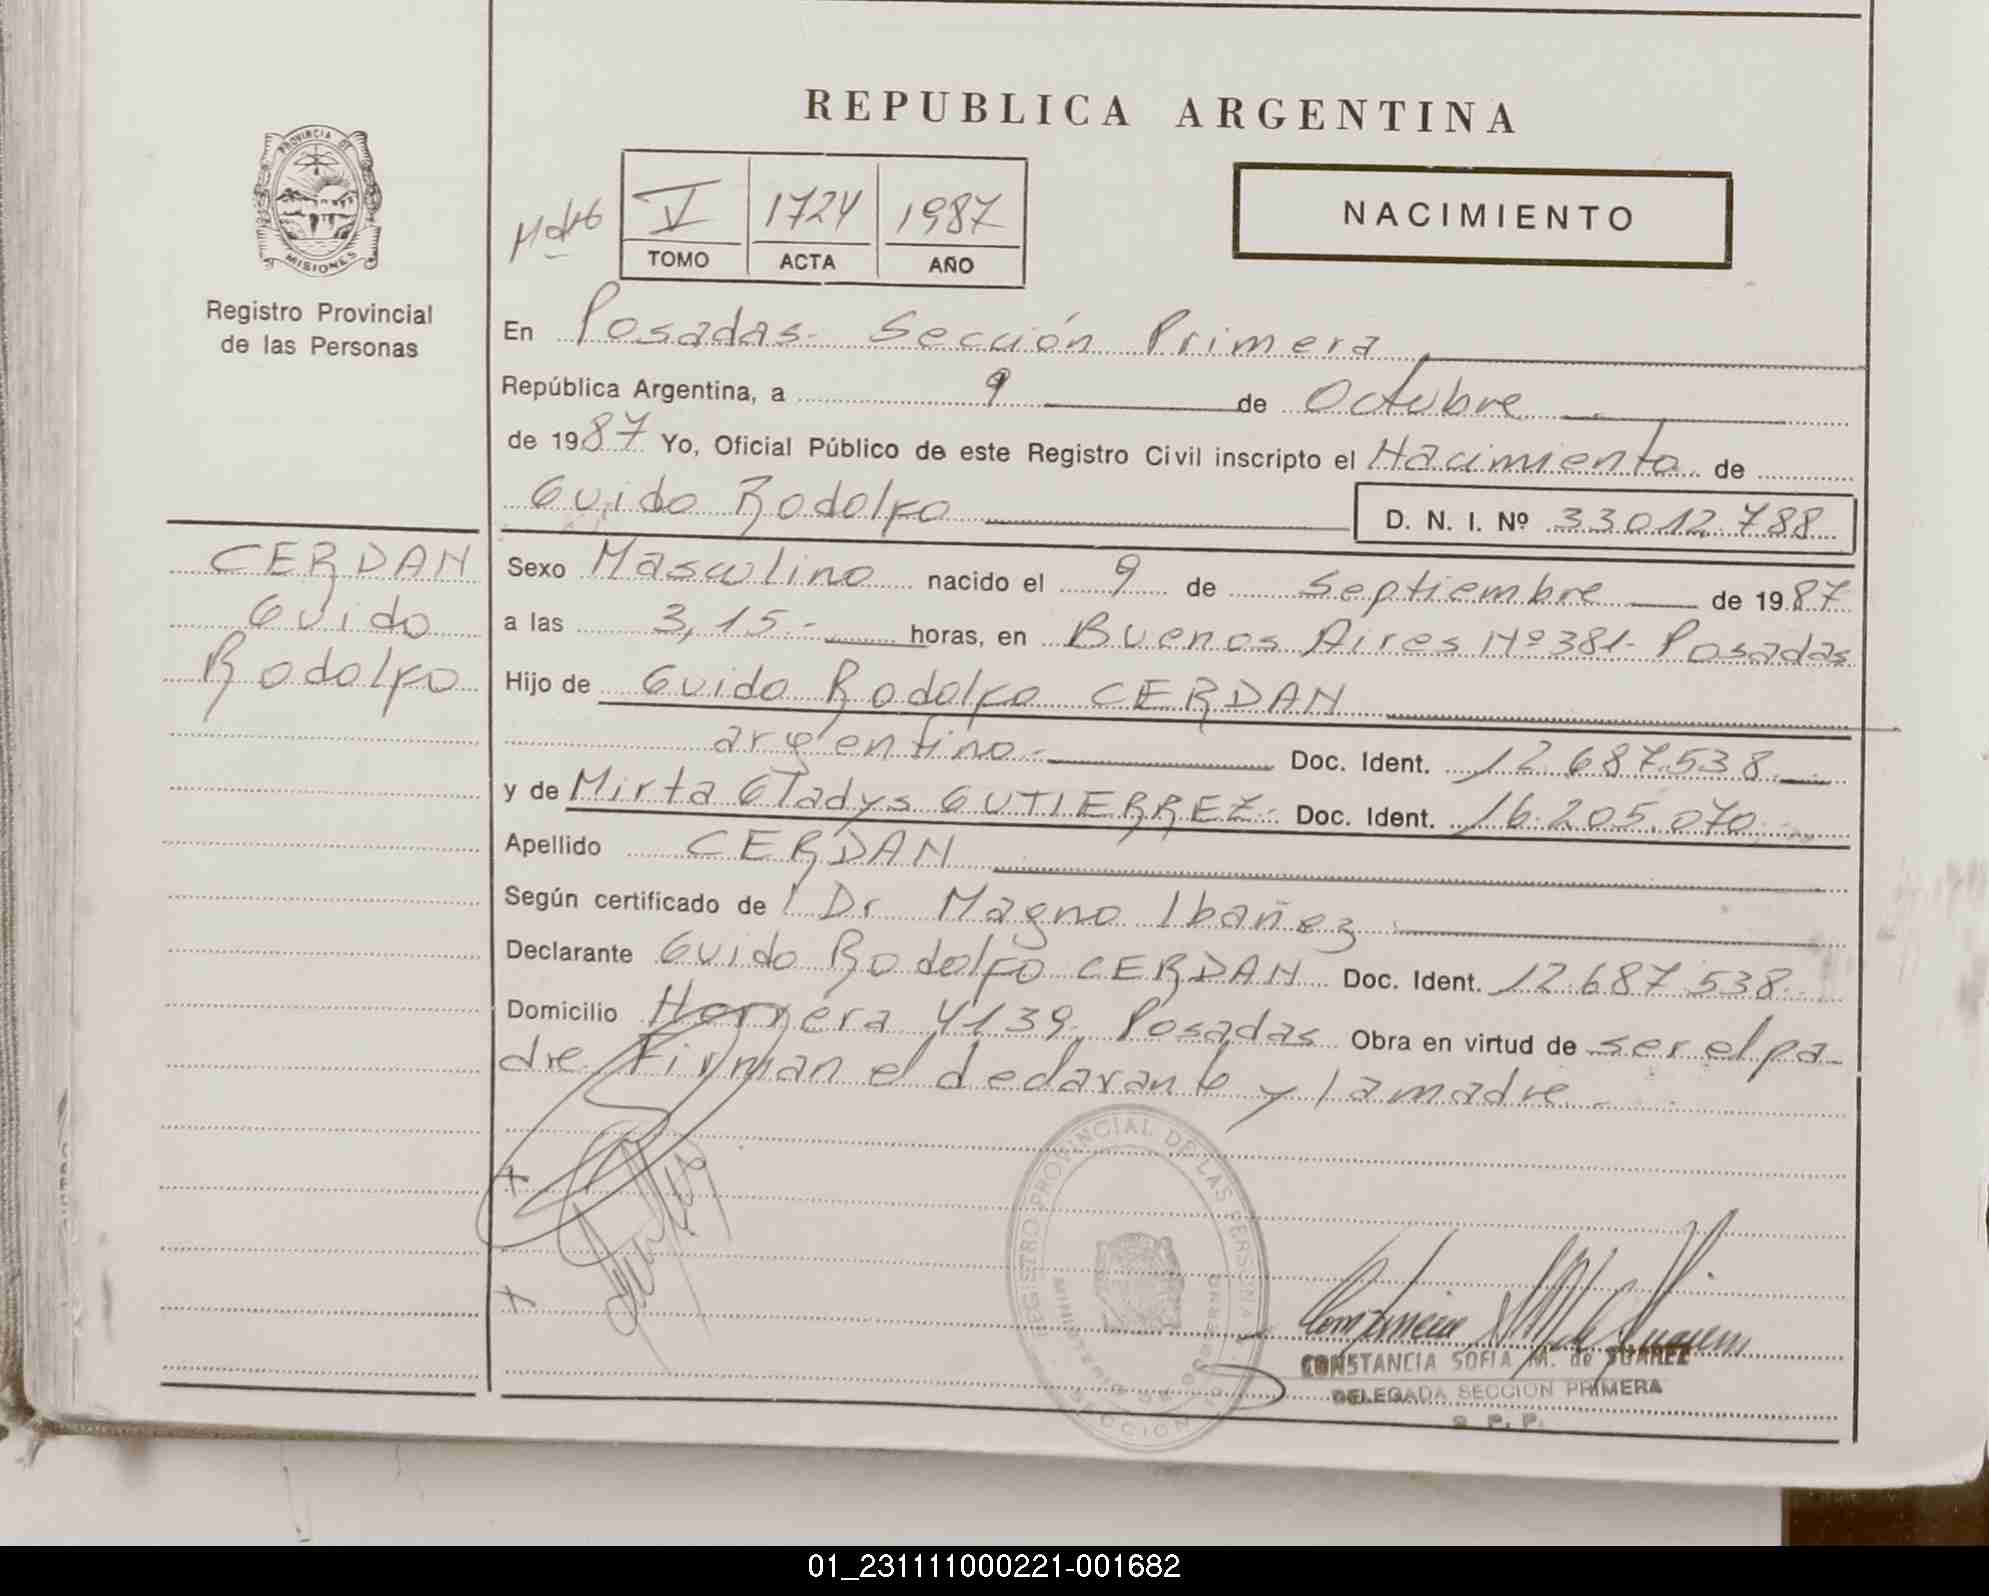 REPUBLICA ARGENTINA
PROVINCIA DE
MISIONES
Registro Provincial
de las Personas
V 1724 1987
TOMO ACTA AÑO
NACIMIENTO
En Posadas- Sección Primera
República Argentina, a 9 de Octubre
de 1987 Yo, Oficial Público de este Registro Civil inscripto el Nacimiento de
Guido Rodolfo D. N. I. Nº 33012.788
CERDAN
Guido
Rodolfo
Sexo Masculino nacido el 9 de Septiembre de 1987
a las 3,15- horas, en Buenos Aires Nº 381- Posadas
Hijo de Guido Rodolfo CERDAN
argentino- Doc. Ident. 12.687.538
y de Mirta Gladys GUTIERREZ- Doc. Ident. 16.205.070
Apellido CERDAN
Según certificado de l Dr Magno Ibañez
Declarante Guido Rodolfo CERDAN Doc. Ident. 12.687.538
Domicilio Herrera 4139. Posadas Obra en virtud de ser el pa-
dre Firman el declarante y la madre.-
REGISTRO PROVINCIAL DE LAS PERSONAS
MINISTERIO DE GOBIERNO
SECCION
CONSTANCIA SOFIA M. de SUAREZ
DELEGADA SECCION PRIMERA
01_231111000221-001682